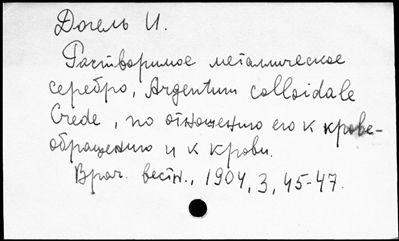 Догель И.
Растворимое металлическое
серебро, Argentum colloidale
Crede, по отношению его к крове-
обращению и к крови.
Врач. вестн., 1904, 3, 45-47.